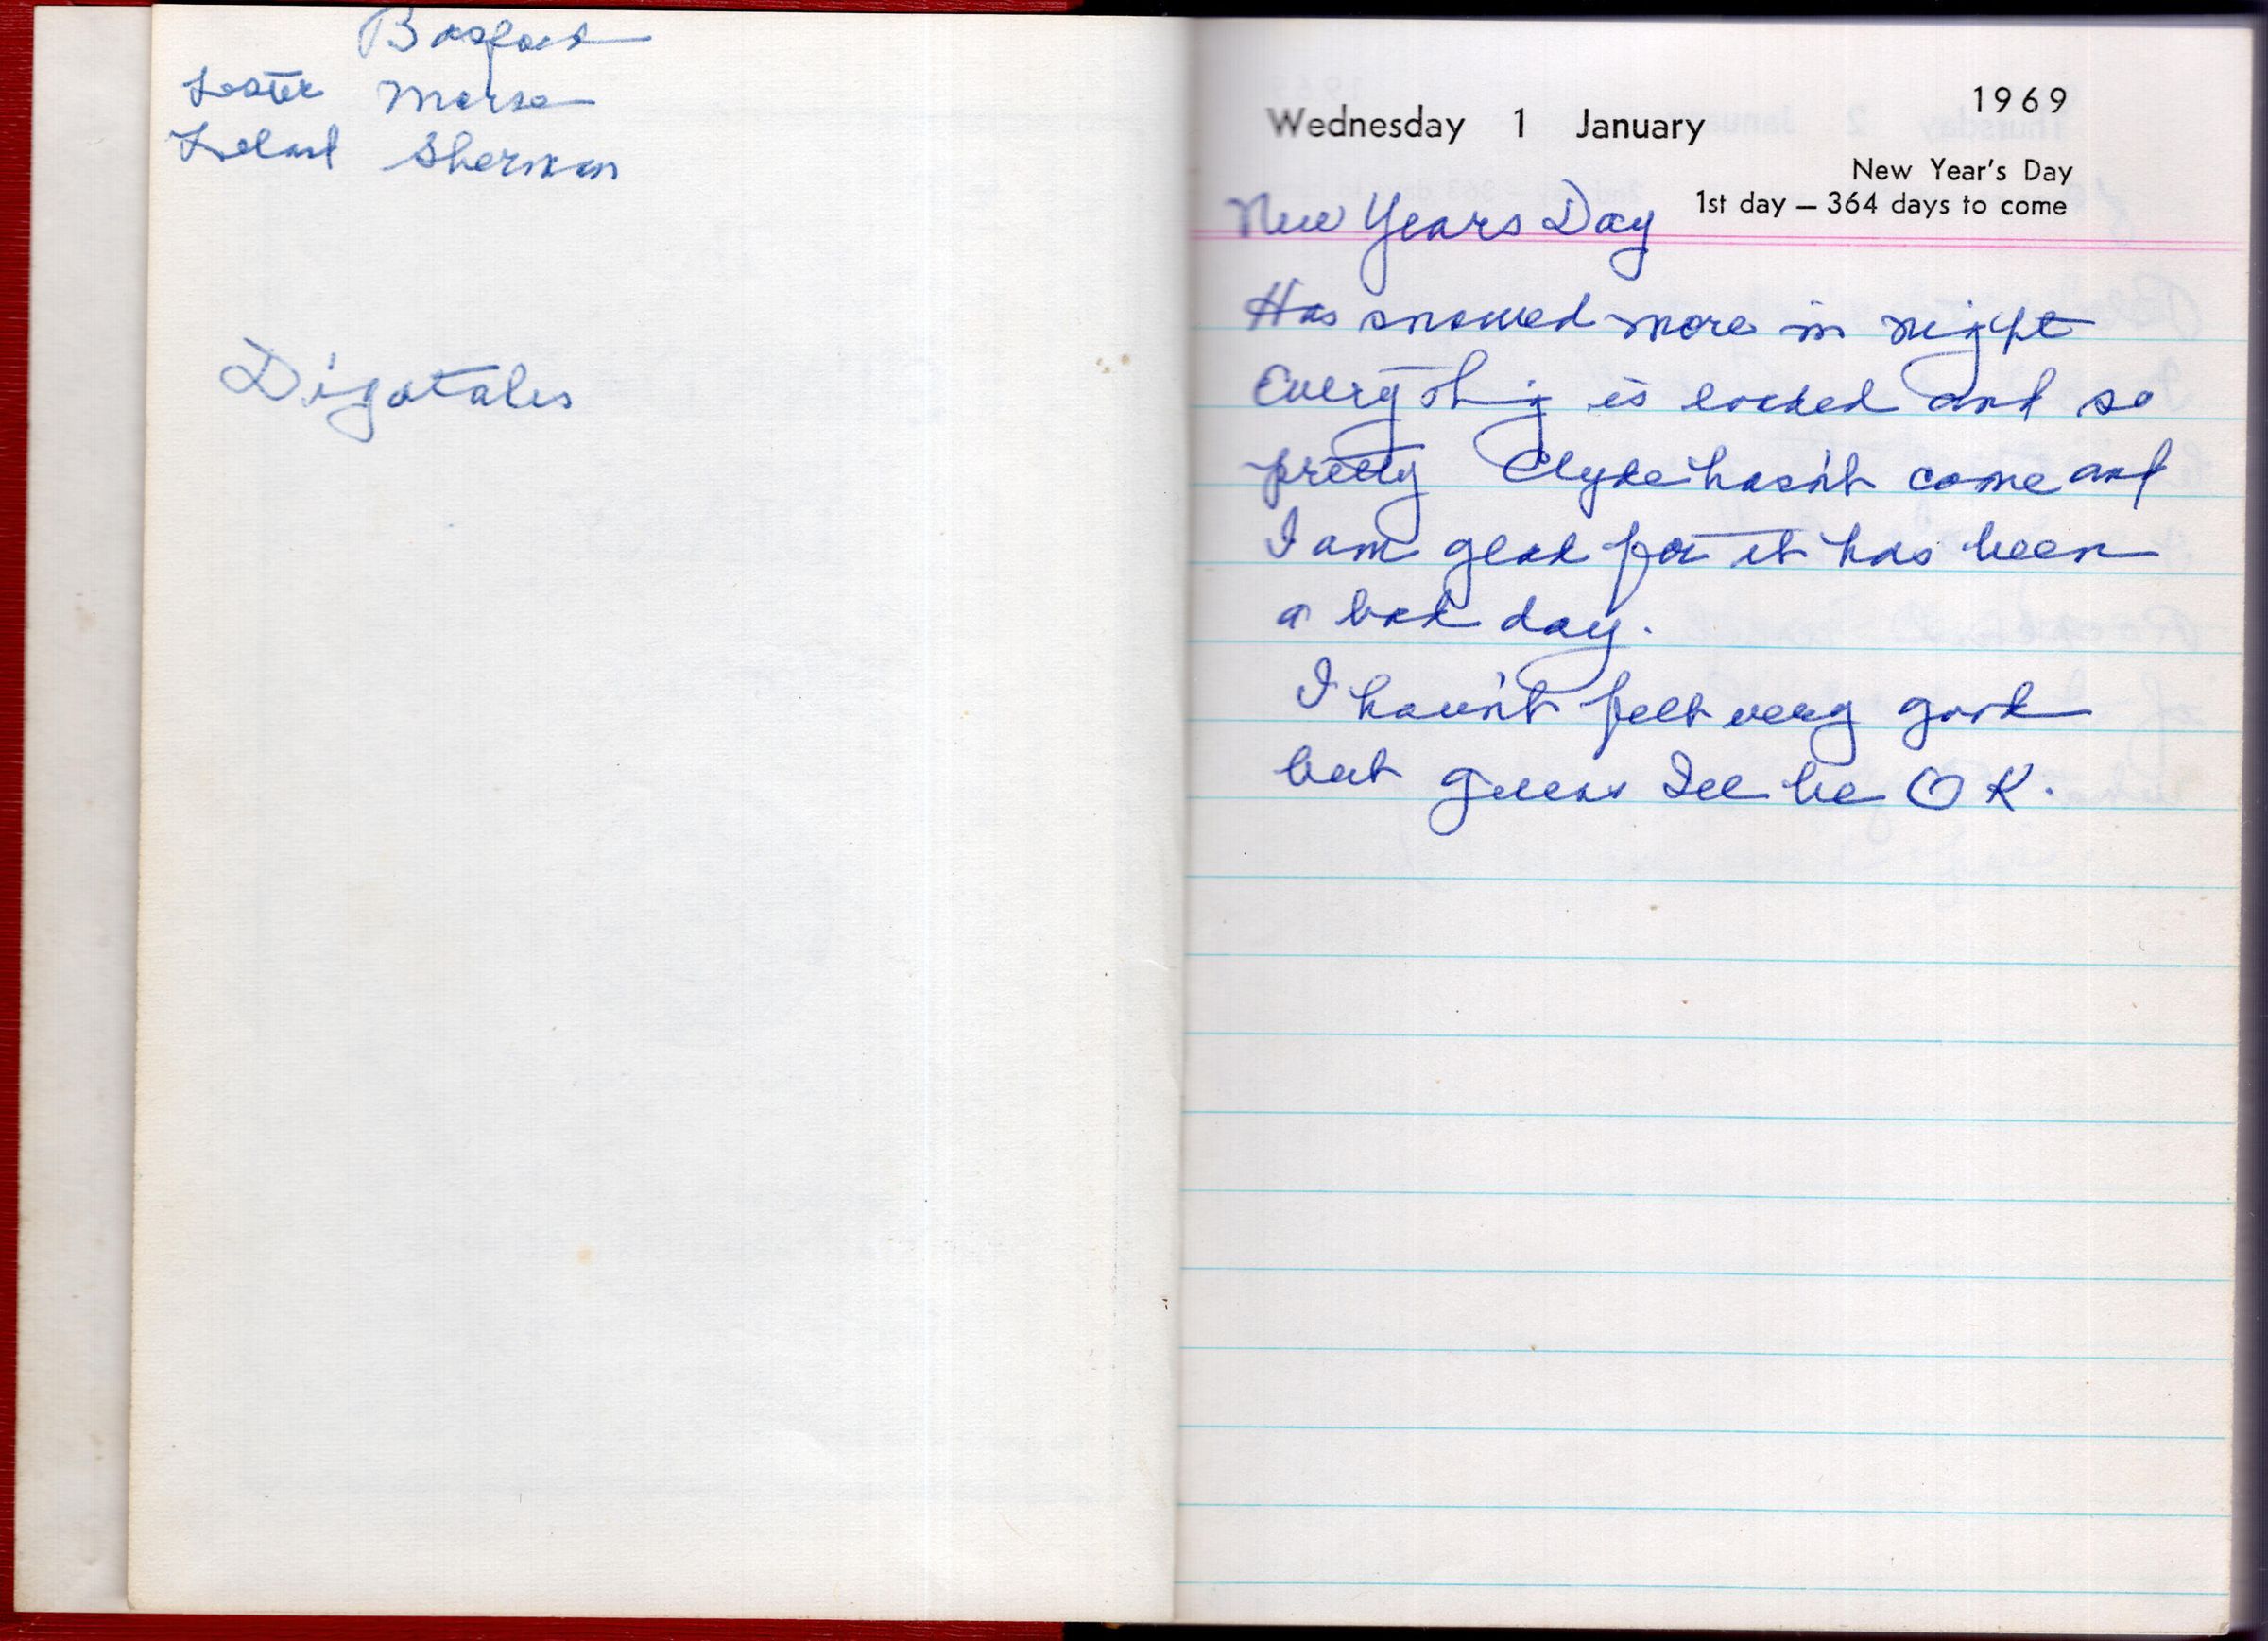 Basford
Lester Morse
Leland Sherman
Digatales
1969
Wednesday 1 January
New Year's Day
1st day — 364 days to come
New Years Day
Has snowed more in night
Everything is loaded and so
pretty Clyde hasn't come and
I am glad for it has been
a bad day.
I haven't felt very good
but guess Ill be OK.